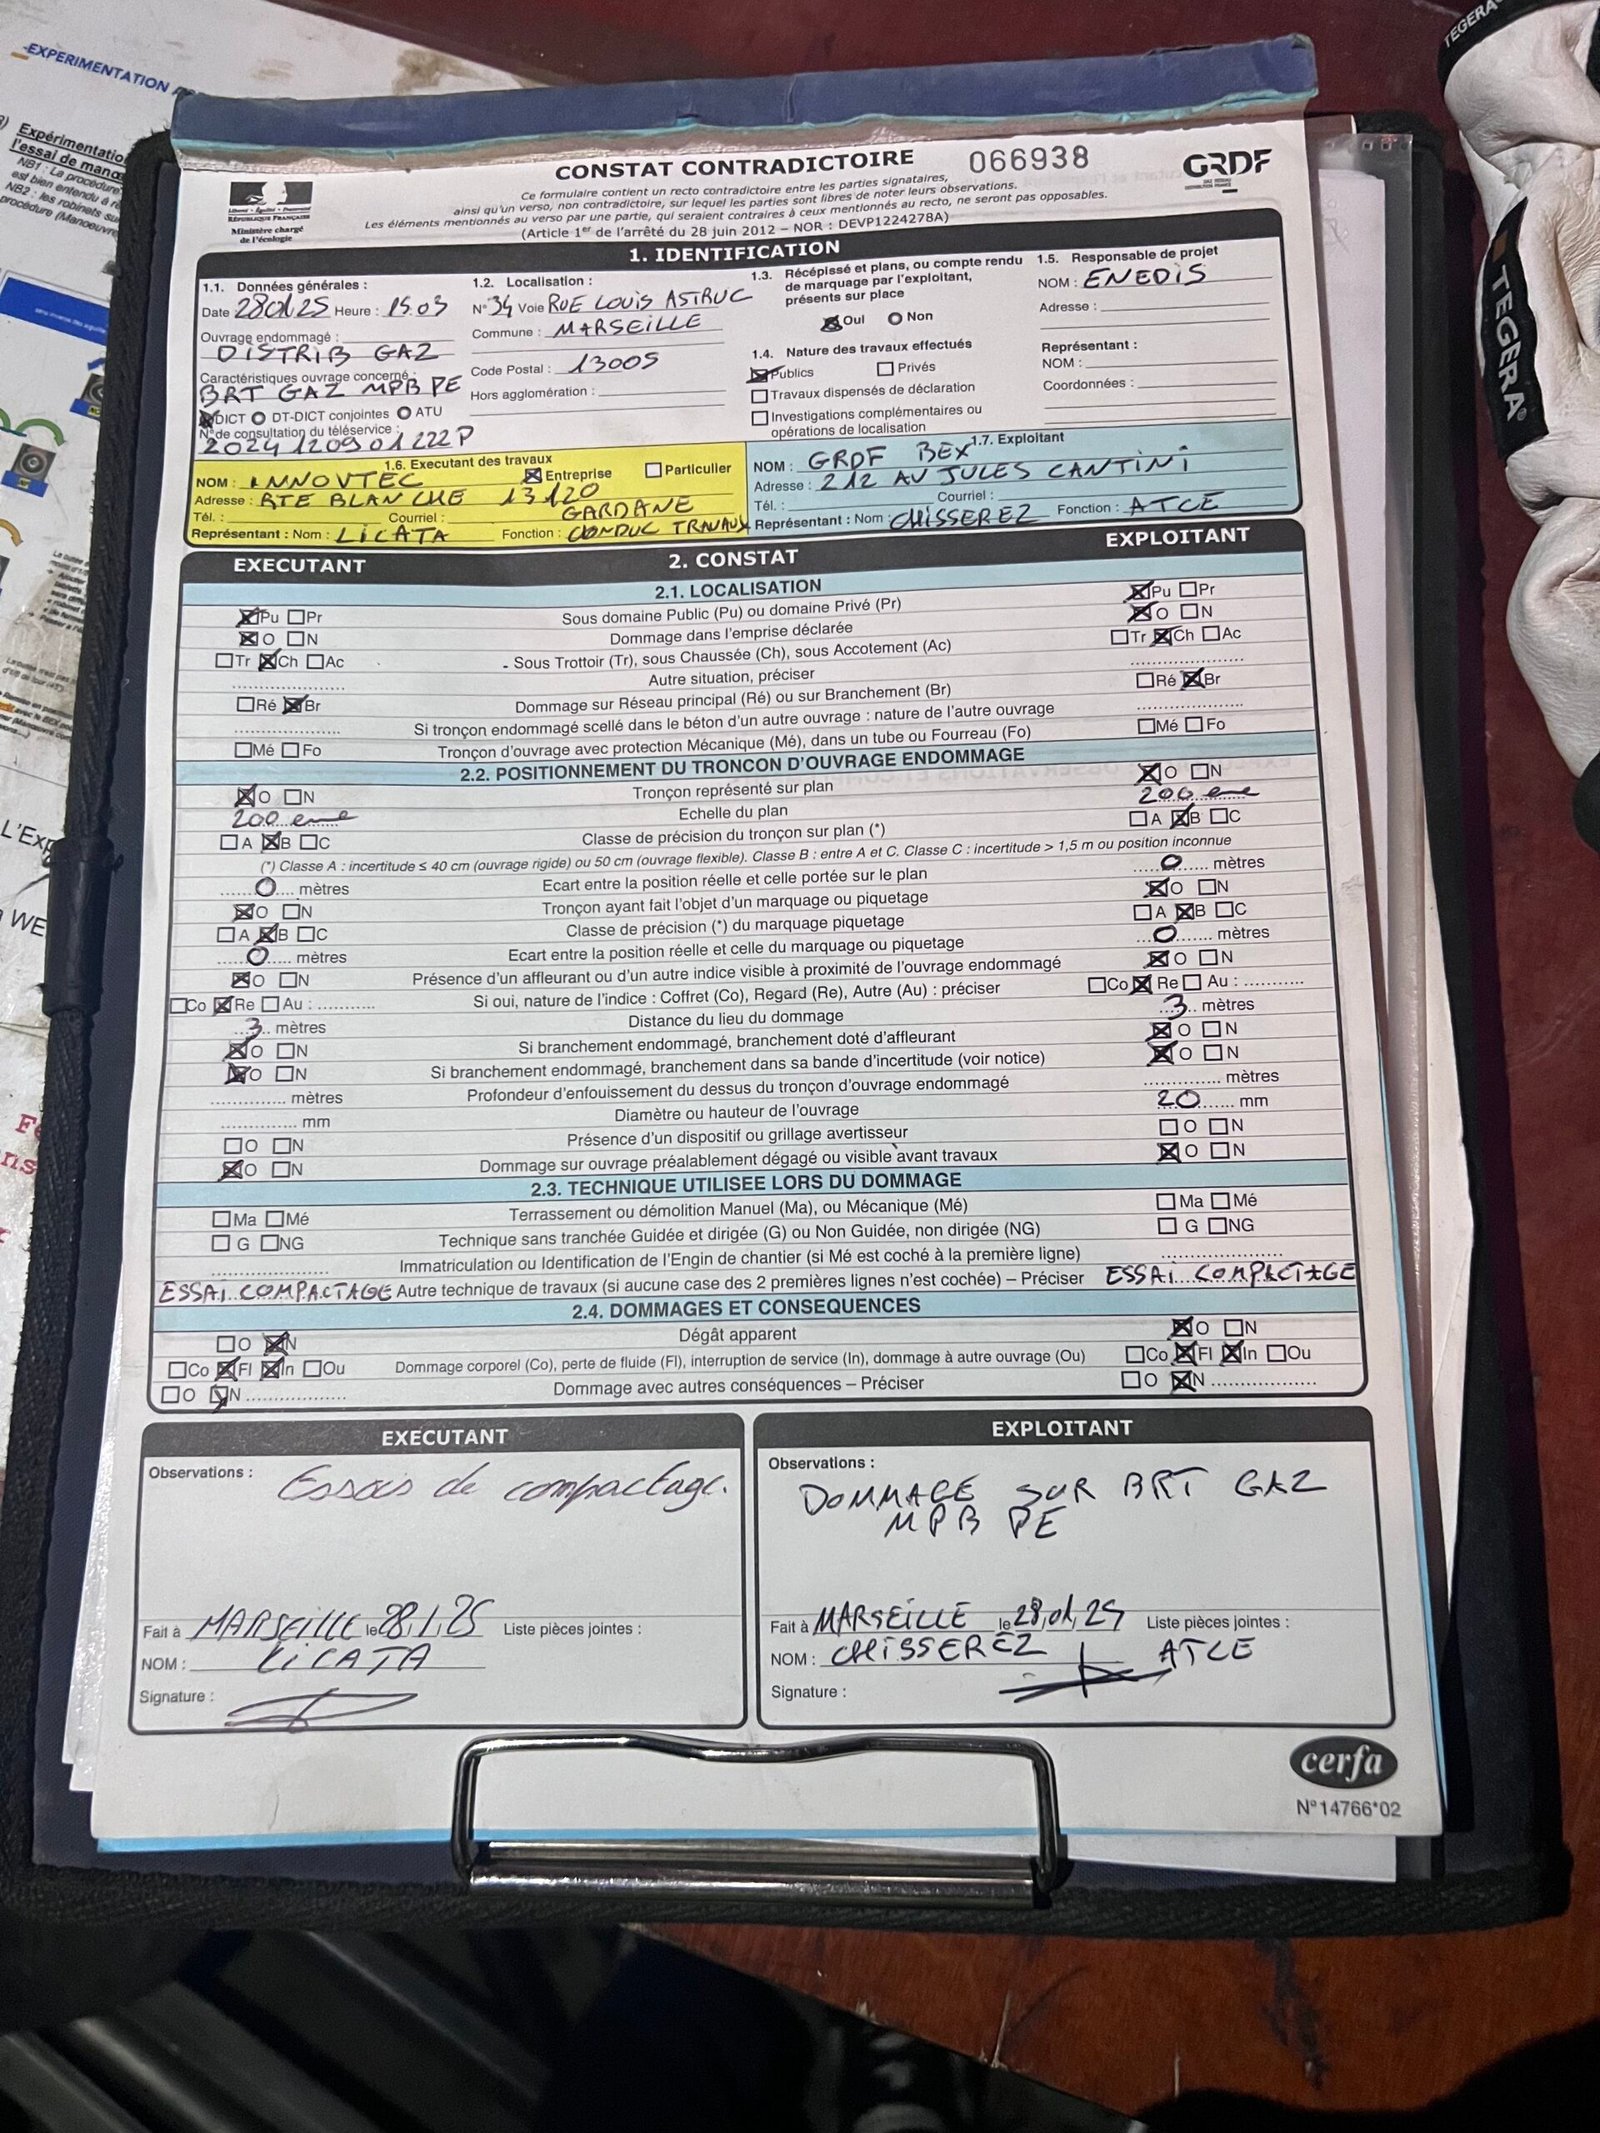 EXPERIMENTATION
Expérimentatio
l'essai de manoe
NB1 : La procédure
est bien entendu à ré
NB2 : les robinets su
procédure (Manoeuvre
L'Exp
WE
TEGERA
TEGERA®
CONSTAT CONTRADICTOIRE 066938 GRDF
Liberté • Égalité • Fraternité
RÉPUBLIQUE FRANÇAISE
Ministère chargé
de l'écologie
Ce formulaire contient un recto contradictoire entre les parties signataires,
ainsi qu'un verso, non contradictoire, sur lequel les parties sont libres de noter leurs observations.
Les éléments mentionnés au verso par une partie, qui seraient contraires à ceux mentionnés au recto, ne seront pas opposables.
(Article 1er de l'arrêté du 28 juin 2012 – NOR : DEVP1224278A)
1. IDENTIFICATION
1.1. Données générales :
Date 28 01 25 Heure : 15.03
Ouvrage endommagé :
DISTRIB GAZ
Caractéristiques ouvrage concerné :
BRT GAZ MPB PE
DICT DT-DICT conjointes ATU
N° de consultation du téléservice :
2024120901222P
1.2. Localisation :
N° 34 Voie RUE LOUIS ASTRUC
Commune : MARSEILLE
Code Postal : 13005
Hors agglomération :
1.3. Récépissé et plans, ou compte rendu
de marquage par l'exploitant,
présents sur place
Oui Non
1.4. Nature des travaux effectués
Publics Privés
Travaux dispensés de déclaration
Investigations complémentaires ou
opérations de localisation
1.5. Responsable de projet
NOM : ENEDIS
Adresse :
Représentant :
NOM :
Coordonnées :
1.6. Executant des travaux
NOM : INNOVTEC Entreprise Particulier
Adresse : RTE BLANCHE 13120
GARDANE
Tél. : Courriel :
Représentant : Nom : LICATA Fonction : CONDUC TRAVAUX
1.7. Exploitant
NOM : GRDF BEX
Adresse : 212 AV JULES CANTINI
Tél. : Courriel :
Représentant : Nom : CHISSEREZ Fonction : ATCE
EXECUTANT 2. CONSTAT EXPLOITANT
2.1. LOCALISATION
Pu Pr Sous domaine Public (Pu) ou domaine Privé (Pr) Pu Pr
O N Dommage dans l'emprise déclarée O N
Tr Ch Ac Sous Trottoir (Tr), sous Chaussée (Ch), sous Accotement (Ac) Tr Ch Ac
Autre situation, préciser
Ré Br Dommage sur Réseau principal (Ré) ou sur Branchement (Br) Ré Br
Si tronçon endommagé scellé dans le béton d'un autre ouvrage : nature de l'autre ouvrage
Mé Fo Tronçon d'ouvrage avec protection Mécanique (Mé), dans un tube ou Fourreau (Fo) Mé Fo
2.2. POSITIONNEMENT DU TRONCON D'OUVRAGE ENDOMMAGE
O N Tronçon représenté sur plan O N
200 eme Echelle du plan 200 eme
A B C Classe de précision du tronçon sur plan (*) A B C
(*) Classe A : incertitude ≤ 40 cm (ouvrage rigide) ou 50 cm (ouvrage flexible). Classe B : entre A et C. Classe C : incertitude > 1,5 m ou position inconnue
0 mètres Ecart entre la position réelle et celle portée sur le plan 0 mètres
O N Tronçon ayant fait l'objet d'un marquage ou piquetage O N
A B C Classe de précision (*) du marquage piquetage A B C
0 mètres Ecart entre la position réelle et celle du marquage ou piquetage 0 mètres
O N Présence d'un affleurant ou d'un autre indice visible à proximité de l'ouvrage endommagé O N
Co Re Au : Si oui, nature de l'indice : Coffret (Co), Regard (Re), Autre (Au) : préciser Co Re Au :
3 mètres Distance du lieu du dommage 3 mètres
O N Si branchement endommagé, branchement doté d'affleurant O N
O N Si branchement endommagé, branchement dans sa bande d'incertitude (voir notice) O N
mètres Profondeur d'enfouissement du dessus du tronçon d'ouvrage endommagé mètres
mm Diamètre ou hauteur de l'ouvrage 20 mm
O N Présence d'un dispositif ou grillage avertisseur O N
O N Dommage sur ouvrage préalablement dégagé ou visible avant travaux O N
2.3. TECHNIQUE UTILISEE LORS DU DOMMAGE
Ma Mé Terrassement ou démolition Manuel (Ma), ou Mécanique (Mé) Ma Mé
G NG Technique sans tranchée Guidée et dirigée (G) ou Non Guidée, non dirigée (NG) G NG
Immatriculation ou Identification de l'Engin de chantier (si Mé est coché à la première ligne)
ESSAI COMPACTAGE Autre technique de travaux (si aucune case des 2 premières lignes n'est cochée) – Préciser ESSAI COMPACTAGE
2.4. DOMMAGES ET CONSEQUENCES
O N Dégât apparent O N
Co Fl In Ou Dommage corporel (Co), perte de fluide (Fl), interruption de service (In), dommage à autre ouvrage (Ou) Co Fl In Ou
O N Dommage avec autres conséquences – Préciser O N
EXECUTANT
Observations : Essais de compactage.
Fait à MARSEILLE le 28/1/25 Liste pièces jointes :
NOM : LICATA
Signature :
EXPLOITANT
Observations :
DOMMAGE SUR BRT GAZ
MPB PE
Fait à MARSEILLE le 28/01/25 Liste pièces jointes :
NOM : CHISSEREZ ATCE
Signature :
cerfa
N°14766*02